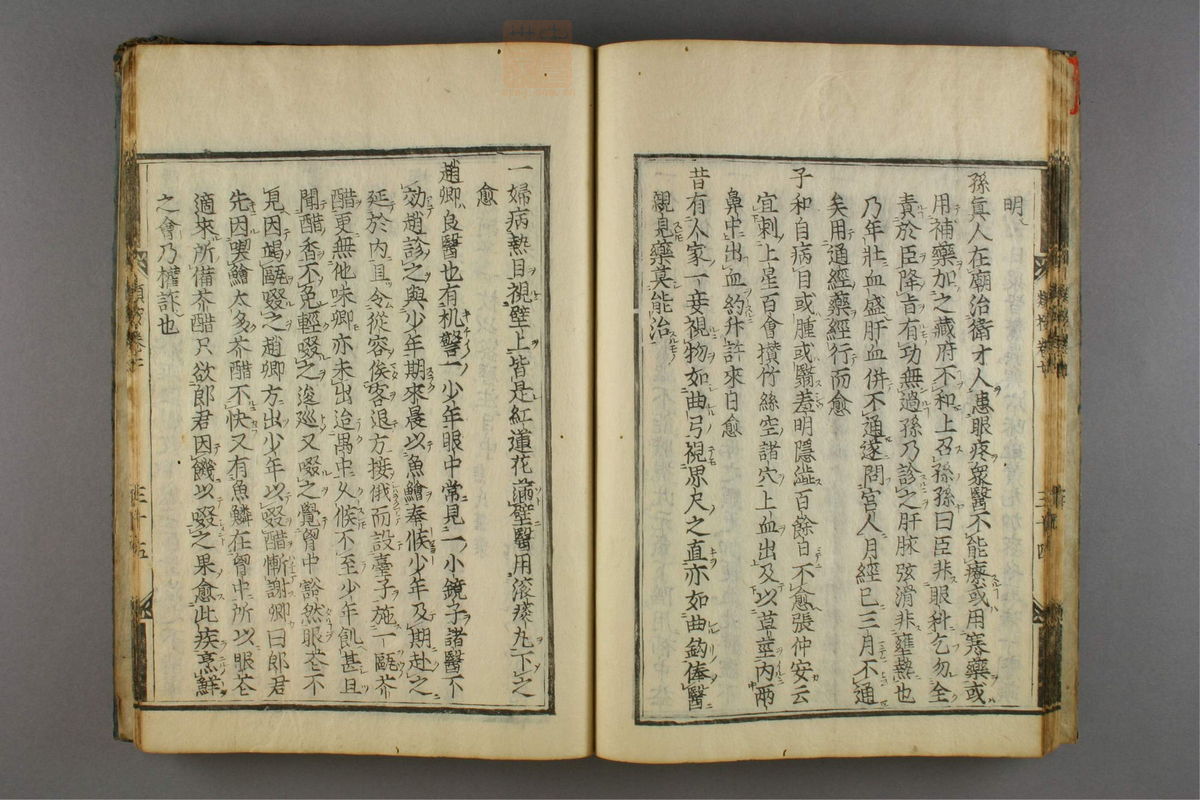 明
孫真人在廟治衛才人患眼疼衆醫不能療或用寒藥或
用補藥加之藏府不和上召孫孫曰臣非眼科乞勿全
責於臣降旨有功無過孫乃診之肝脉弦滑非壅熱也
乃年壯血盛肝血併不通遂問宮人月經已三月不通
矣用通經藥經行而愈
子和自病目或腫或翳羞明隱澁百餘日不愈張仲安云
宜刺上星百會攢竹絲空諸穴上血出及以草莖内兩
鼻中出血約升許來日愈
昔有人家一妾視物如曲弓視思尺之直亦如曲鈎俾醫
親見藥莫能治
一婦病熱目視壁上皆是紅蓮花滿壁醫用滚痰丸下之
愈
趙卿良醫也有机警一少年眼中常見一小鏡子諸醫不
効趙診之與少年期來晨以魚鱠奉候少年及期赴之
延於内且令從容俟客退方接俄而設臺子施一甌芥
醋更無他味卿亦未出迨禺中久候不至少年飢甚且
聞醋香不免輕啜之逡巡又啜之覺胷中豁然眼花不
見因竭甌啜之趙卿方出少年以啜醋慚謝卿曰郎君
先因喫鱠太多芥醋不快又有魚鱗在胷中所以眼花
適來所備芥醋只欲郎君因饑以啜之果愈此疾烹鮮
之會乃權詐也